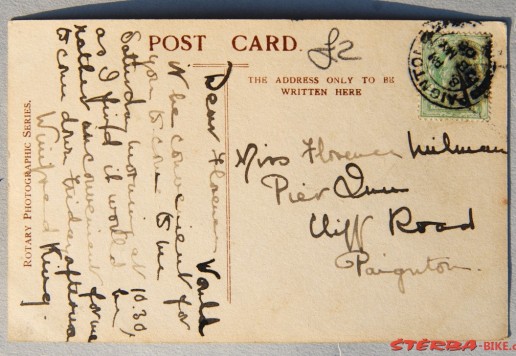 POST CARD.
£2
THE ADDRESS ONLY TO BE
WRITTEN HERE
PAIGNTON
ROTARY PHOTOGRAPHIC SERIES.
Dear Florence Would
it be convenient for
you to come to me
Saturday morning at 10.30
as I find it would be
rather inconvenient for me
to come down Friday afternoon
Winifred King.
Miss Florence Milman
Pier Inn
Cliff Road
Paignton.
STERBA-BIKE.c